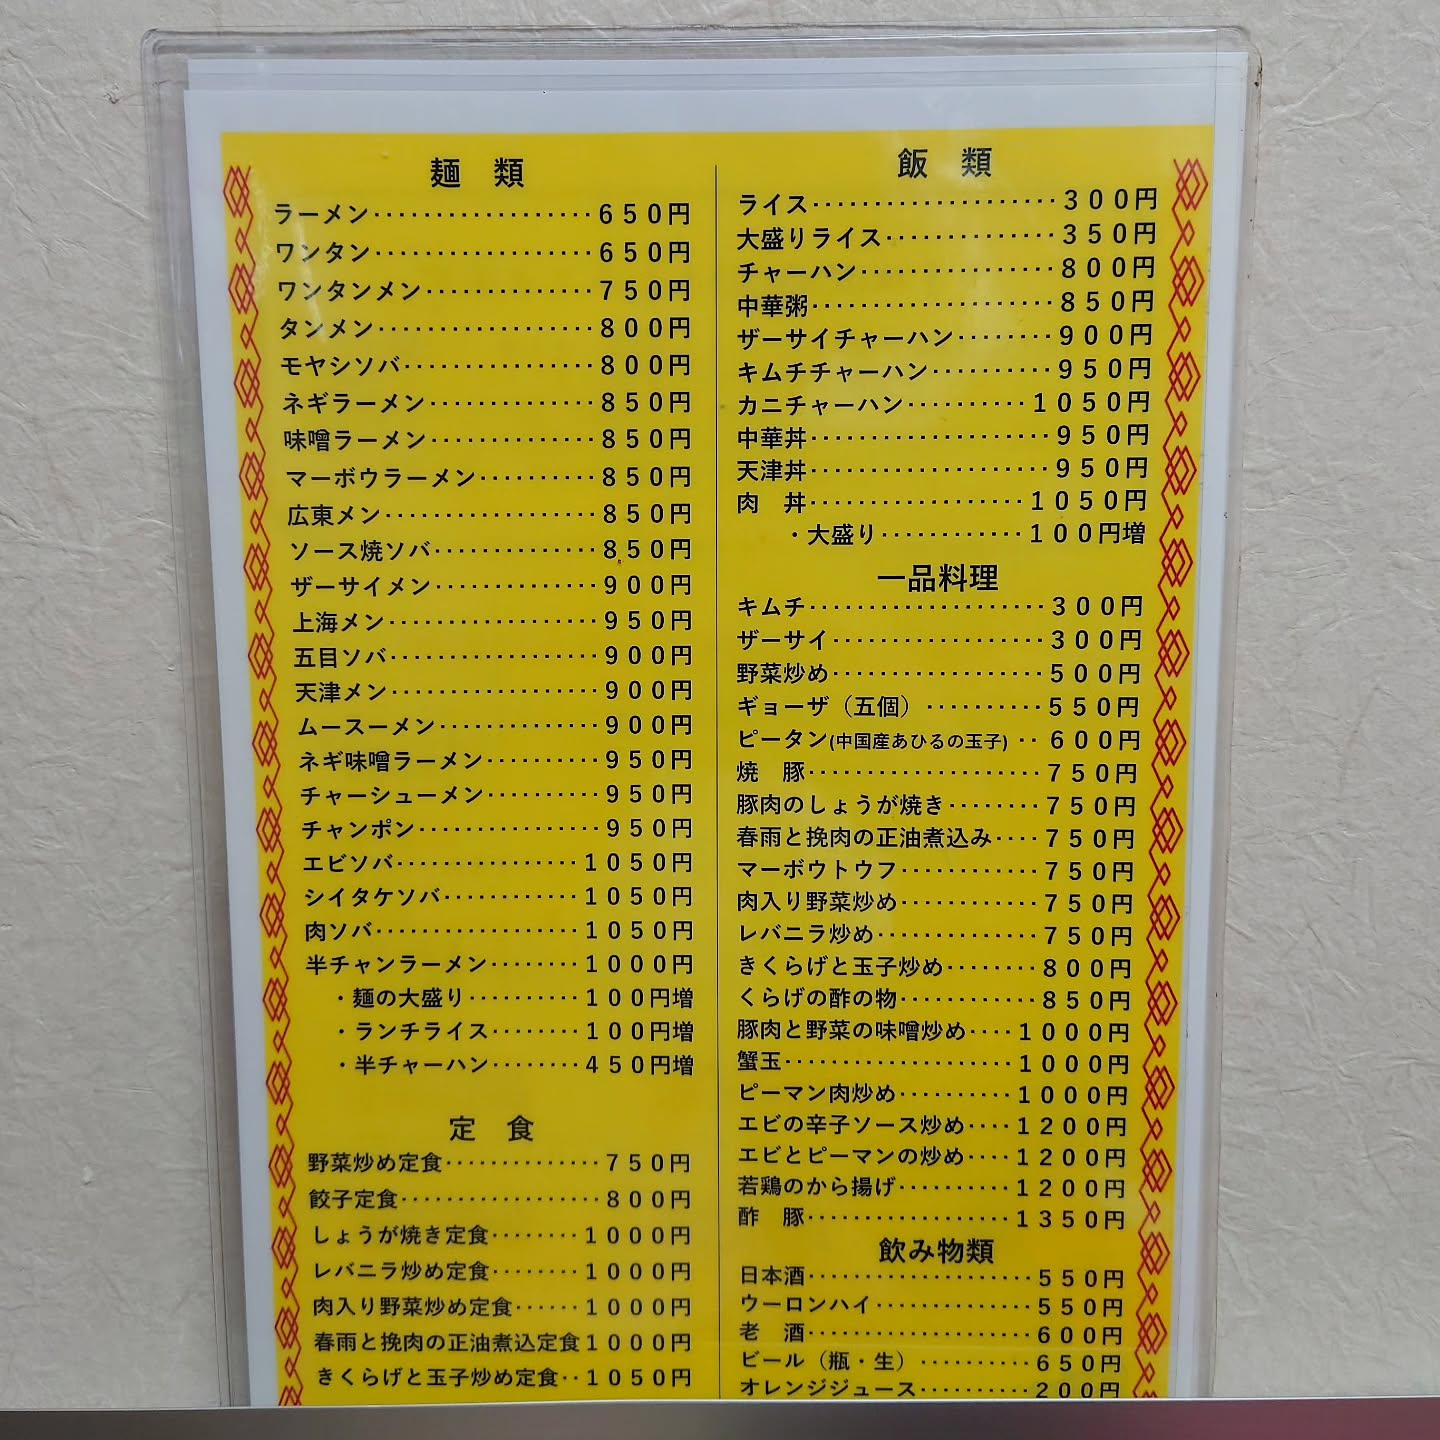 麺　類
ラーメン‥‥‥‥‥‥‥‥‥６５０円
ワンタン‥‥‥‥‥‥‥‥‥６５０円
ワンタンメン‥‥‥‥‥‥‥７５０円
タンメン‥‥‥‥‥‥‥‥‥８００円
モヤシソバ‥‥‥‥‥‥‥‥８００円
ネギラーメン‥‥‥‥‥‥‥８５０円
味噌ラーメン‥‥‥‥‥‥‥８５０円
マーボウラーメン‥‥‥‥‥８５０円
広東メン‥‥‥‥‥‥‥‥‥８５０円
ソース焼ソバ‥‥‥‥‥‥‥８５０円
ザーサイメン‥‥‥‥‥‥‥９００円
上海メン‥‥‥‥‥‥‥‥‥９５０円
五目ソバ‥‥‥‥‥‥‥‥‥９００円
天津メン‥‥‥‥‥‥‥‥‥９００円
ムースーメン‥‥‥‥‥‥‥９００円
ネギ味噌ラーメン‥‥‥‥‥９５０円
チャーシューメン‥‥‥‥‥９５０円
チャンポン‥‥‥‥‥‥‥‥９５０円
エビソバ‥‥‥‥‥‥‥‥１０５０円
シイタケソバ‥‥‥‥‥‥１０５０円
肉ソバ‥‥‥‥‥‥‥‥‥１０５０円
半チャンラーメン‥‥‥‥１０００円
・麺の大盛り‥‥‥‥‥１００円増
・ランチライス‥‥‥‥１００円増
・半チャーハン‥‥‥‥４５０円増
定　食
野菜炒め定食‥‥‥‥‥‥‥７５０円
餃子定食‥‥‥‥‥‥‥‥‥８００円
しょうが焼き定食‥‥‥‥１０００円
レバニラ炒め定食‥‥‥‥１０００円
肉入り野菜炒め定食‥‥‥１０００円
春雨と挽肉の正油煮込定食１０００円
きくらげと玉子炒め定食‥１０５０円
飯　類
ライス‥‥‥‥‥‥‥‥‥‥３００円
大盛りライス‥‥‥‥‥‥‥３５０円
チャーハン‥‥‥‥‥‥‥‥８００円
中華粥‥‥‥‥‥‥‥‥‥‥８５０円
ザーサイチャーハン‥‥‥‥９００円
キムチチャーハン‥‥‥‥‥９５０円
カニチャーハン‥‥‥‥‥１０５０円
中華丼‥‥‥‥‥‥‥‥‥‥９５０円
天津丼‥‥‥‥‥‥‥‥‥‥９５０円
肉　丼‥‥‥‥‥‥‥‥‥１０５０円
・大盛り‥‥‥‥‥‥１００円増
一品料理
キムチ‥‥‥‥‥‥‥‥‥‥３００円
ザーサイ‥‥‥‥‥‥‥‥‥３００円
野菜炒め‥‥‥‥‥‥‥‥‥５００円
ギョーザ（五個）‥‥‥‥‥５５０円
ピータン(中国産あひるの玉子)‥６００円
焼　豚‥‥‥‥‥‥‥‥‥‥７５０円
豚肉のしょうが焼き‥‥‥‥７５０円
春雨と挽肉の正油煮込み‥‥７５０円
マーボウトウフ‥‥‥‥‥‥７５０円
肉入り野菜炒め‥‥‥‥‥‥７５０円
レバニラ炒め‥‥‥‥‥‥‥７５０円
きくらげと玉子炒め‥‥‥‥８００円
くらげの酢の物‥‥‥‥‥‥８５０円
豚肉と野菜の味噌炒め‥‥１０００円
蟹玉‥‥‥‥‥‥‥‥‥‥１０００円
ピーマン肉炒め‥‥‥‥‥１０００円
エビの辛子ソース炒め‥‥１２００円
エビとピーマンの炒め‥‥１２００円
若鶏のから揚げ‥‥‥‥‥１２００円
酢　豚‥‥‥‥‥‥‥‥‥１３５０円
飲み物類
日本酒‥‥‥‥‥‥‥‥‥‥５５０円
ウーロンハイ‥‥‥‥‥‥‥５５０円
老　酒‥‥‥‥‥‥‥‥‥‥６００円
ビール（瓶・生）‥‥‥‥‥６５０円
オレンジジュース‥‥‥‥‥２００円